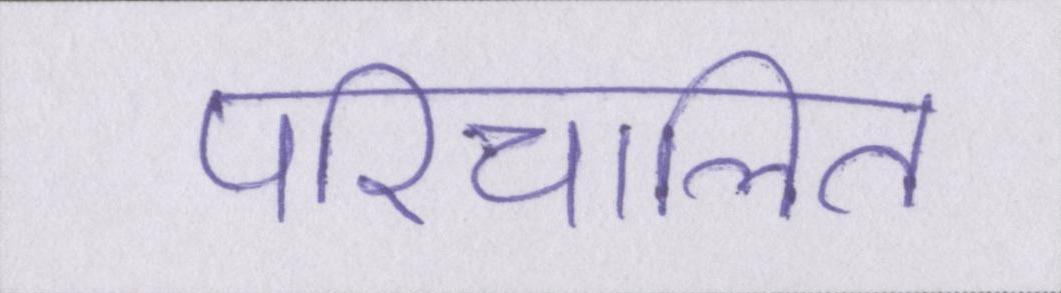 परिचालित